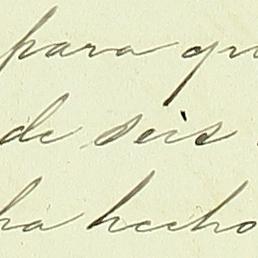 para qu
de seis
ha hecho